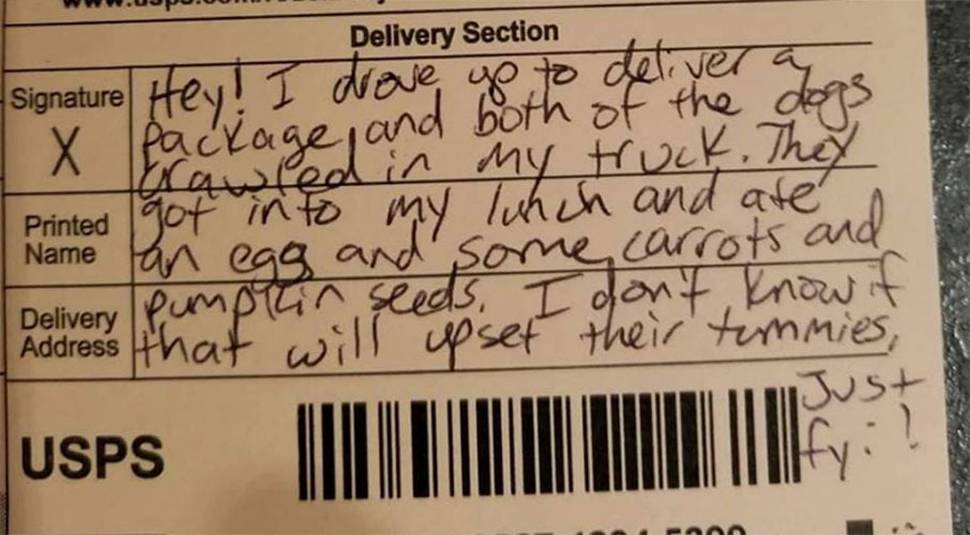 Delivery Section
Signature
X
Hey! I drove up to deliver a
package, and both of the dogs
crawled in my truck. They
Printed
Name
got into my lunch and ate
an egg and some carrots and
Delivery
Address
pumpkin seeds. I don't know if
that will upset their tummies,
Just
fyi!
USPS